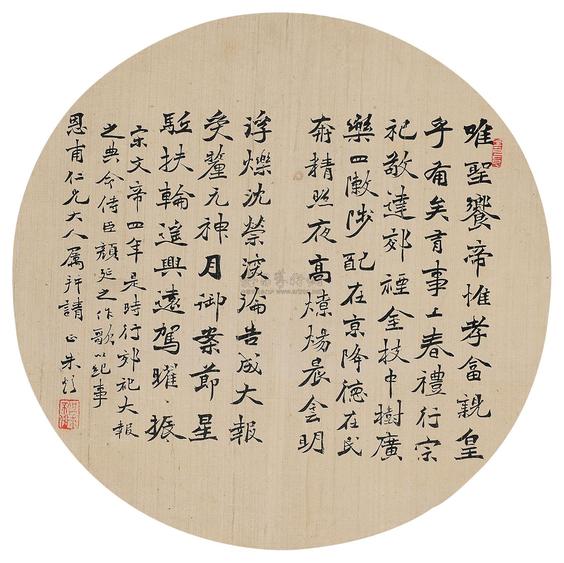 唯聖饗帝惟孝畗親皇
乎備矣有事上春禮行宗
祀敬達郊禋金枝中樹廣
樂四敶陟配在京降德在民
奔精照夜高燎煬晨侌明
浮爍沈禜深淪告成大報
受釐元神月御案節星
駈扶輪遙興遠駕曜振
宋文帝四年是時行郊祀大報
之典令侍臣顏延之作歌以紀事
恩甫仁兄大人屬并請正朱